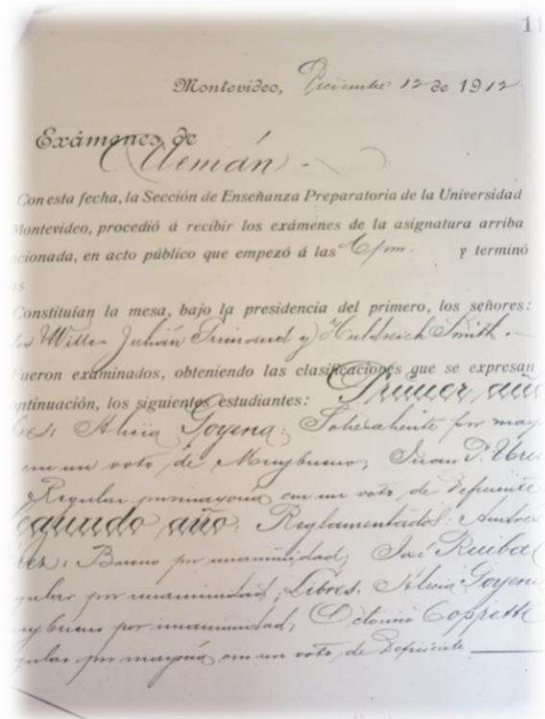 11
Montevideo, Diciembre 12 de 1912
Exámenes de
Alemán
Con esta fecha, la Sección de Enseñanza Preparatoria de la Universidad
Montevideo, procedió á recibir los exámenes de la asignatura arriba
cionada, en acto público que empezó á las y terminó
os
Constituían la mesa, bajo la presidencia del primero, los señores:
Willi Julián y Huldreich Smith.
Fueron examinados, obteniendo las clasificaciones que se expresan
ontinuación, los siguientes estudiantes: Primer año
Alicia Goyena; Sobresaliente por may
con un voto de Muy bueno; Juan P.
Regular por mayoría con un voto de Deficiente
egundo año. Reglamentados: Andrés
rez. Bueno por unanimidad; José Ruibal
gular por unanimidad; Libres. Alicia Goyena
uy bueno por unanimidad; Octavio Coppetti
gular por mayoría con un voto de Deficiente